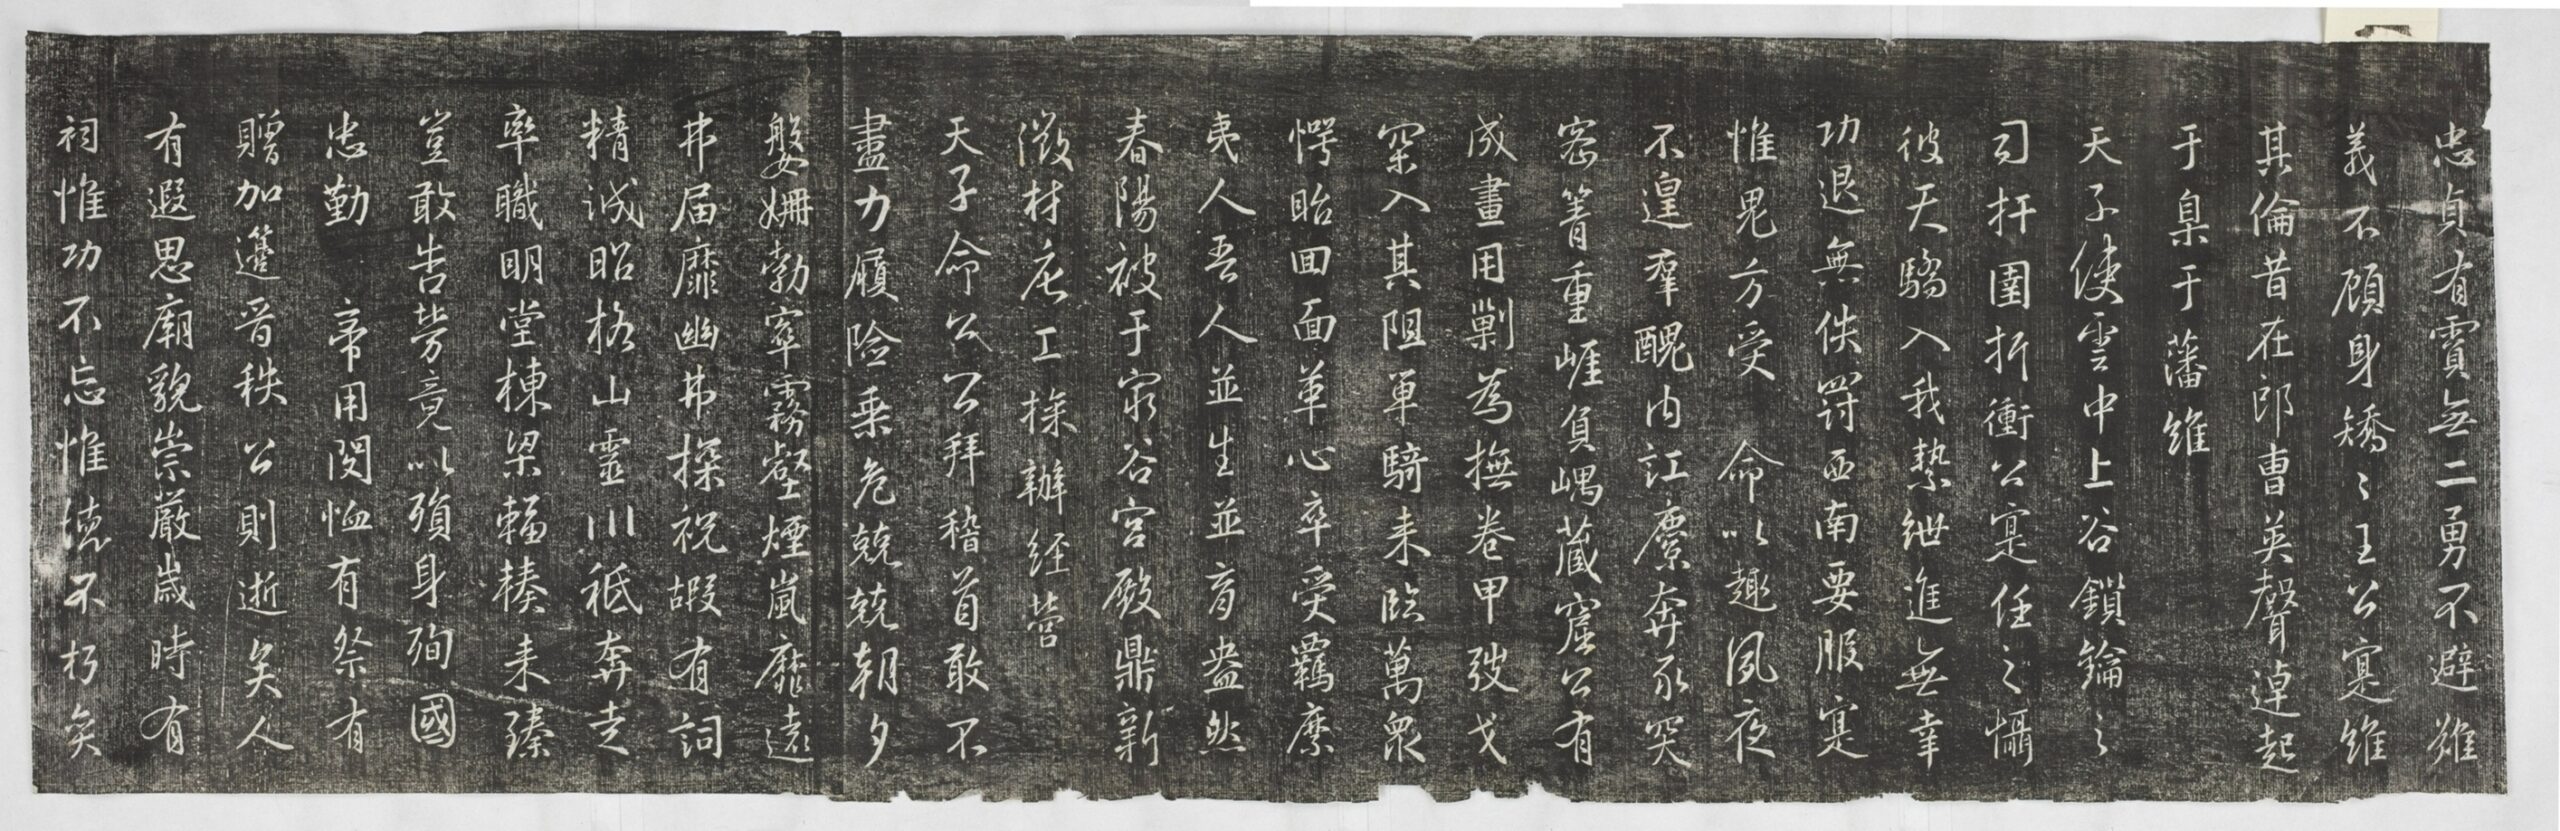 忠貞有實無二勇不避難
義不顧身矯〻王公寔維
其倫昔在郎曹英聲淖起
于臬于藩維
天子使雲中上谷鎖鑰之
司扞圉折衝公寔任之懾
彼天驕入我縶紲進無幸
功退無佚罸西南要服寔
惟鬼方受 命以趣夙夜
不遑羣醜内訌麇奔豕突
密箐重崕負嵎藏窟公有
成畫用剿為撫卷甲弢戈
罙入其阻單騎来臨萬衆
愕眙回面革心卒受羈縻
夷人吾人並生並育盎然
春陽被于窮谷宮殿鼎新
徵材庀工採辦經營
天子命公公拜稽首敢不
盡力履險乗危兢兢朝夕
媻姍勃窣霧壑煙嵐靡遠
弗届靡幽弗探祝嘏有詞
精誠昭格山靈川祗奔走
率職明堂棟梁輻輳来臻
豈敢告勞竟以殞身殉國
忠勤 帝用閔恤有祭有
贈加籩晋秩公則逝矣人
有遐思廟貌崇嚴歲時有
祠惟功不忘惟德不朽矣